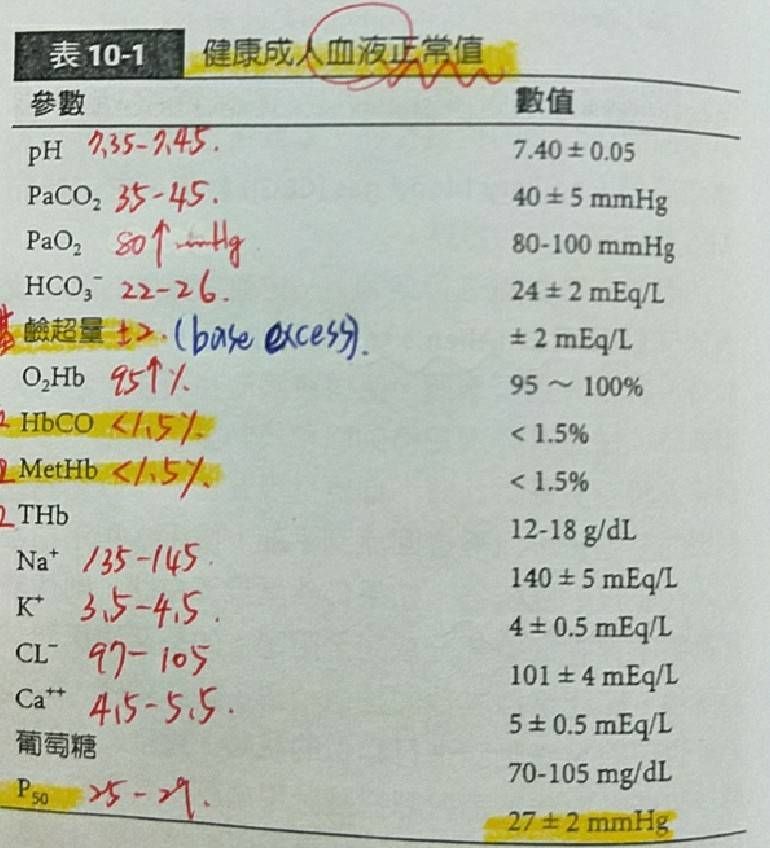 表 10-1 健康成人血液正常值
參數 數值
pH 7.35-7.45. 7.40 ± 0.05
PaCO₂ 35-45. 40 ± 5 mmHg
PaO₂ 80↑mmHg 80-100 mmHg
HCO₃⁻ 22-26. 24 ± 2 mEq/L
鹼超量 ±2. (base excess). ± 2 mEq/L
O₂Hb 95↑%. 95 ~ 100%
HbCO <1.5%. < 1.5%
MetHb <1.5%. < 1.5%
THb 12-18 g/dL
Na⁺ 135-145. 140 ± 5 mEq/L
K⁺ 3.5-4.5. 4 ± 0.5 mEq/L
CL⁻ 97-105 101 ± 4 mEq/L
Ca⁺⁺ 4.5-5.5. 5 ± 0.5 mEq/L
葡萄糖 70-105 mg/dL
P₅₀ 25-29. 27 ± 2 mmHg